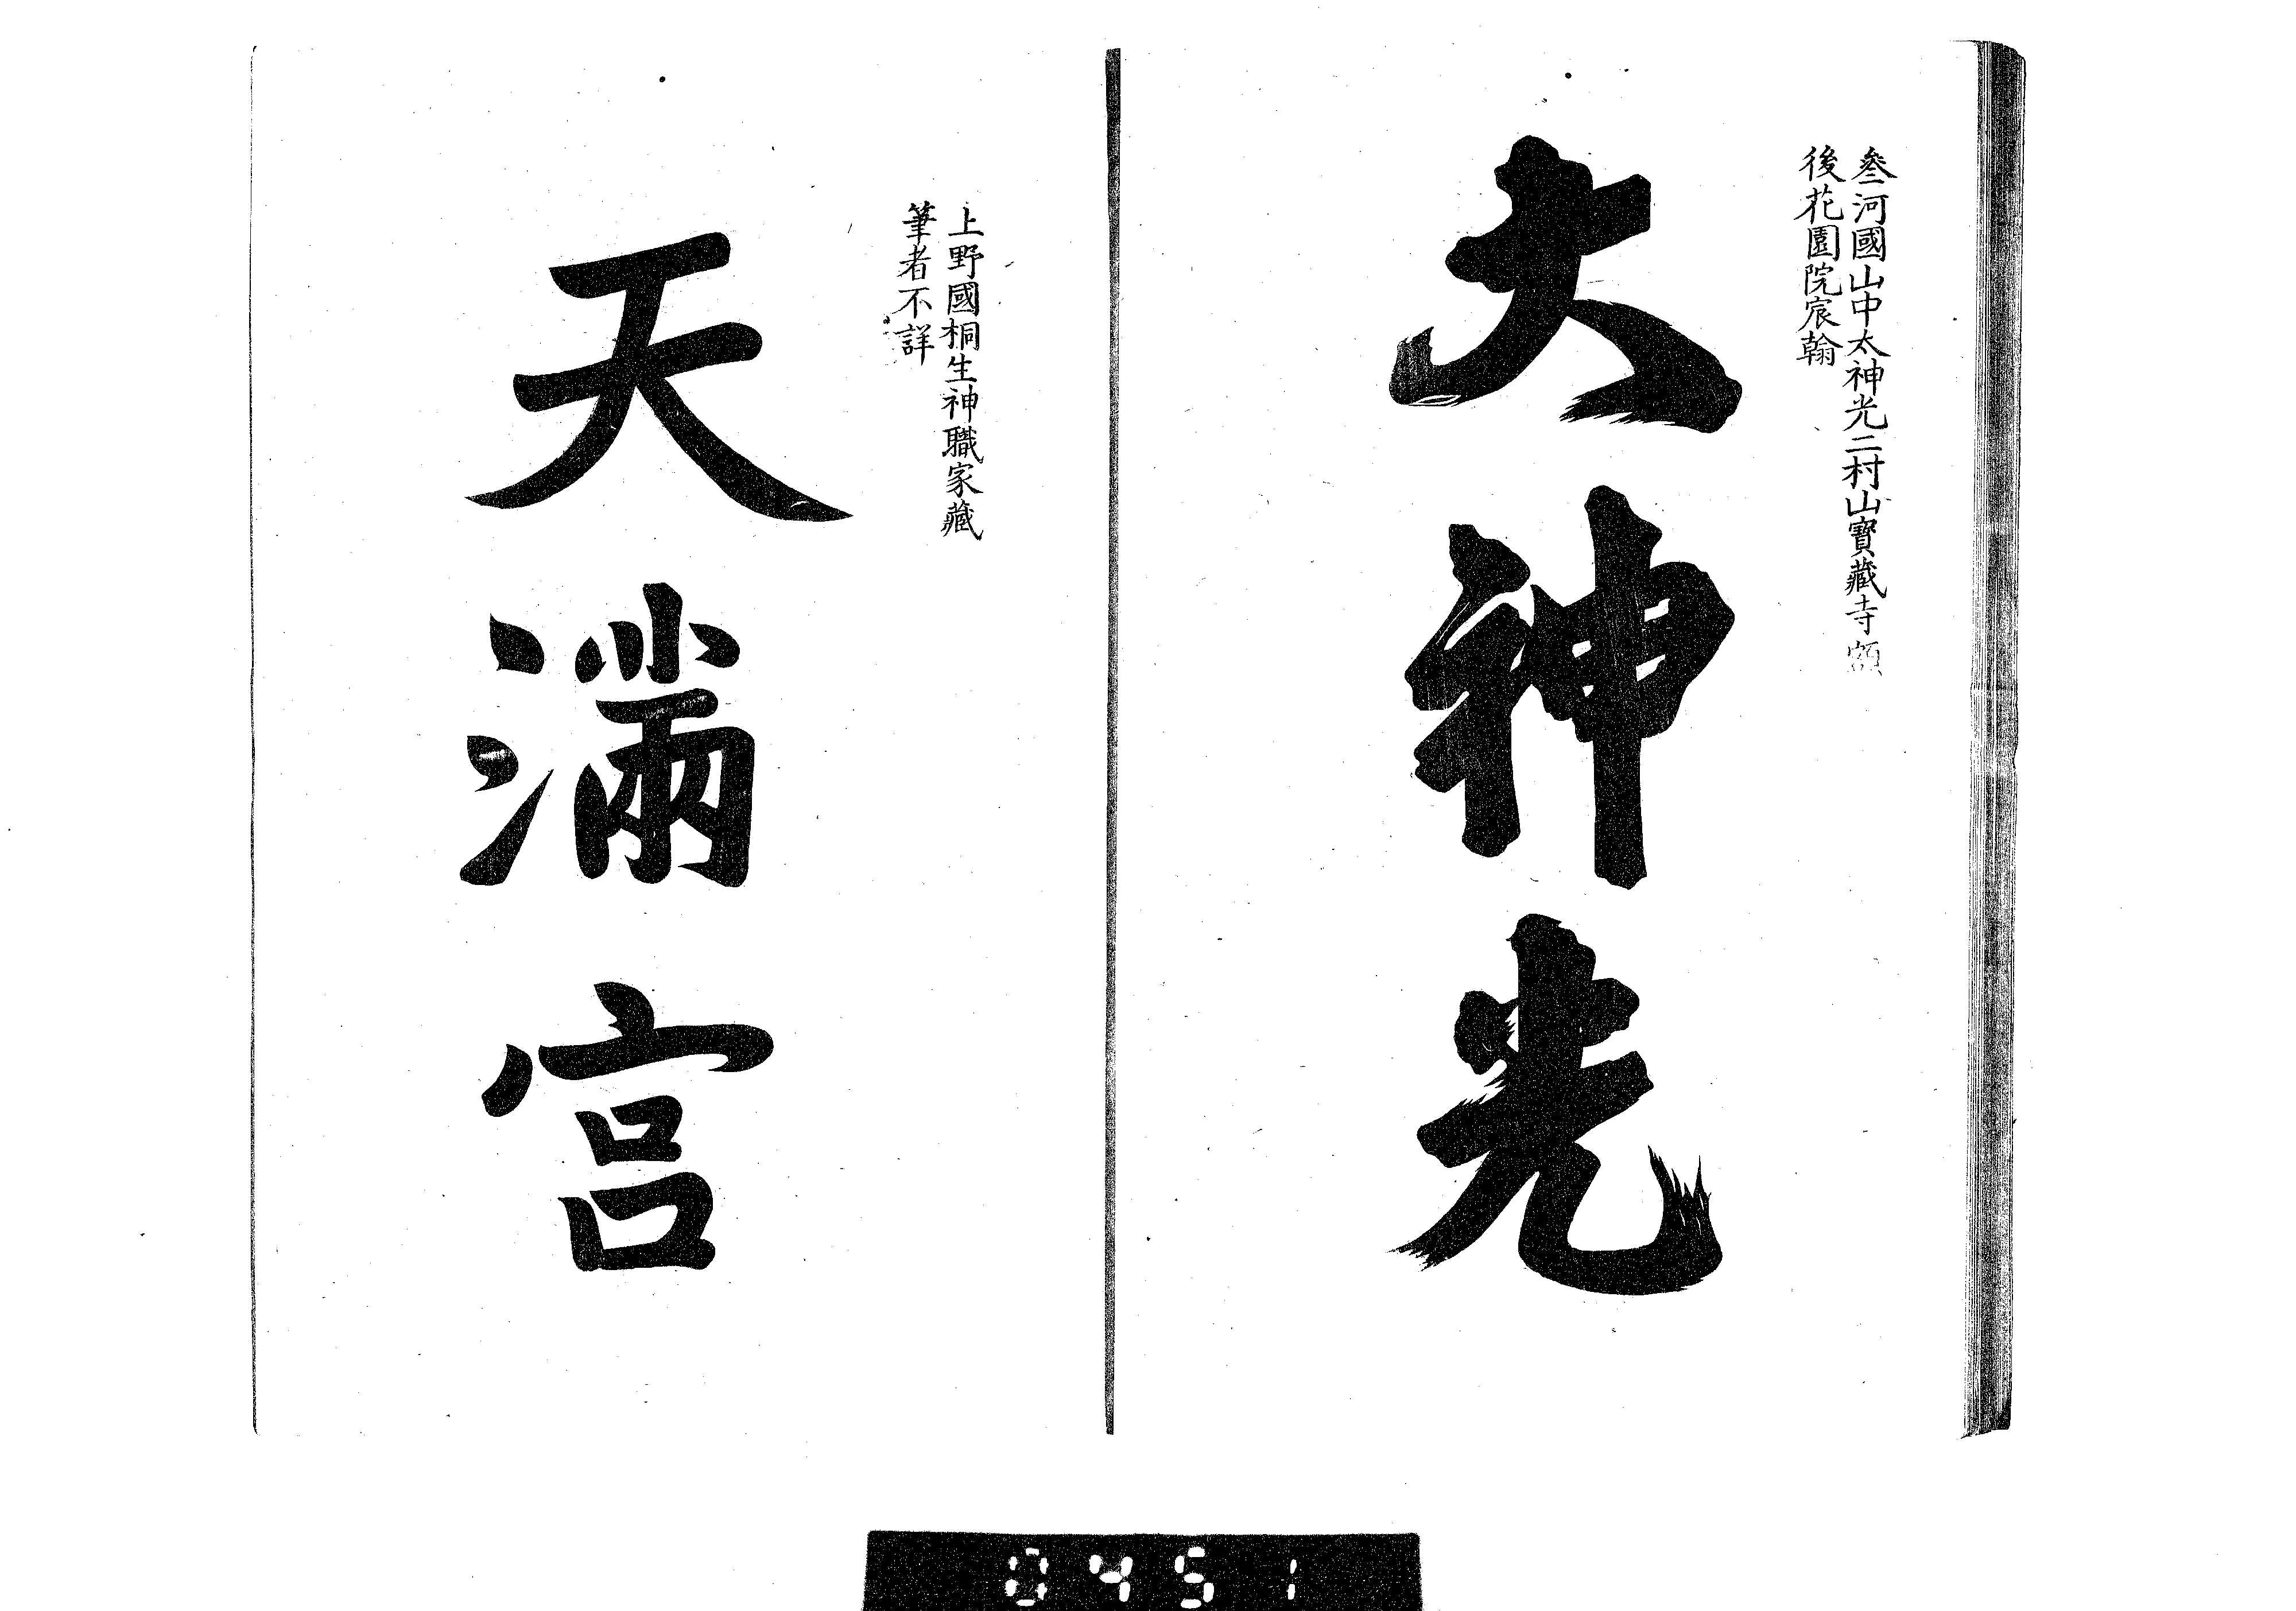 叄河國山中太神光二村山寶藏寺額
後花園院宸翰
大神光
上野國桐生神職家藏
筆者不詳
天滿宮
0451